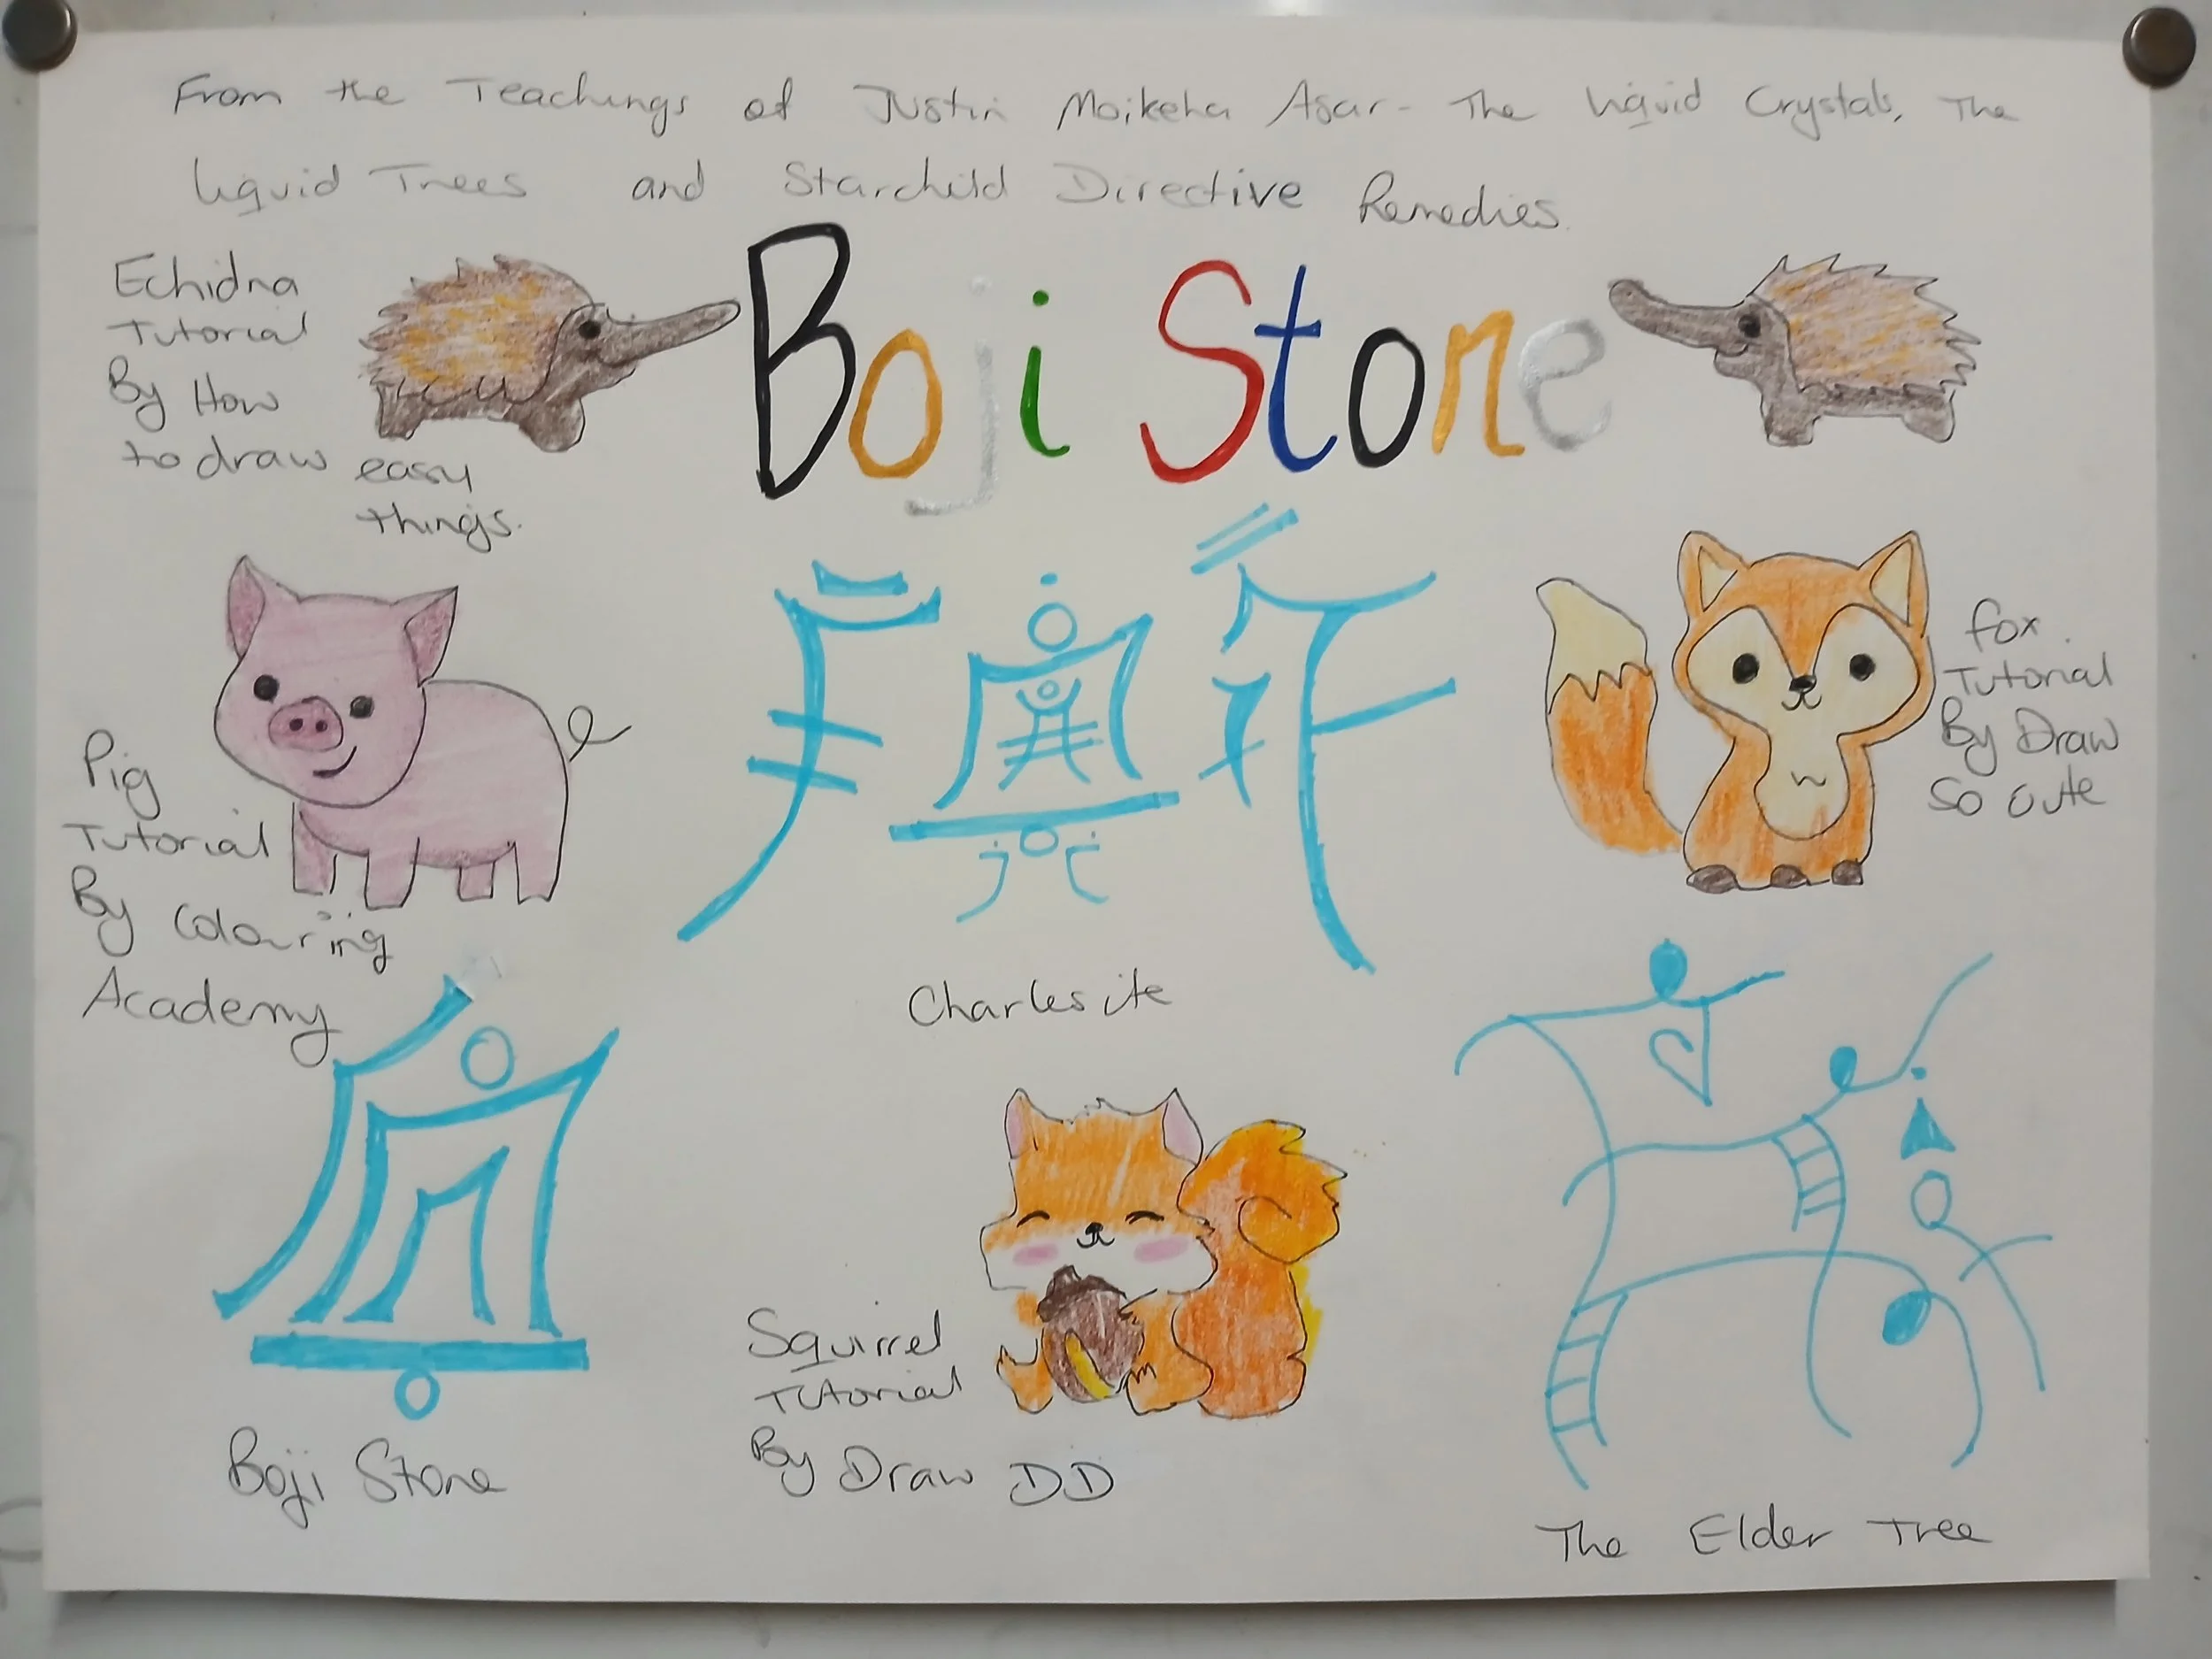 From the Teachings of Justin Moikeha Asar - The Liquid Crystals, The
Liquid Trees and Starchild Directive Remedies.
Echidna
Tutorial
By How
to draw easy
things.
Boji Stone
Pig
Tutorial
By Colouring
Academy
fox
Tutorial
By Draw
So Cute
Charlesite
Squirrel
Tutorial
By Draw DD
Boji Stone
The Elder Tree